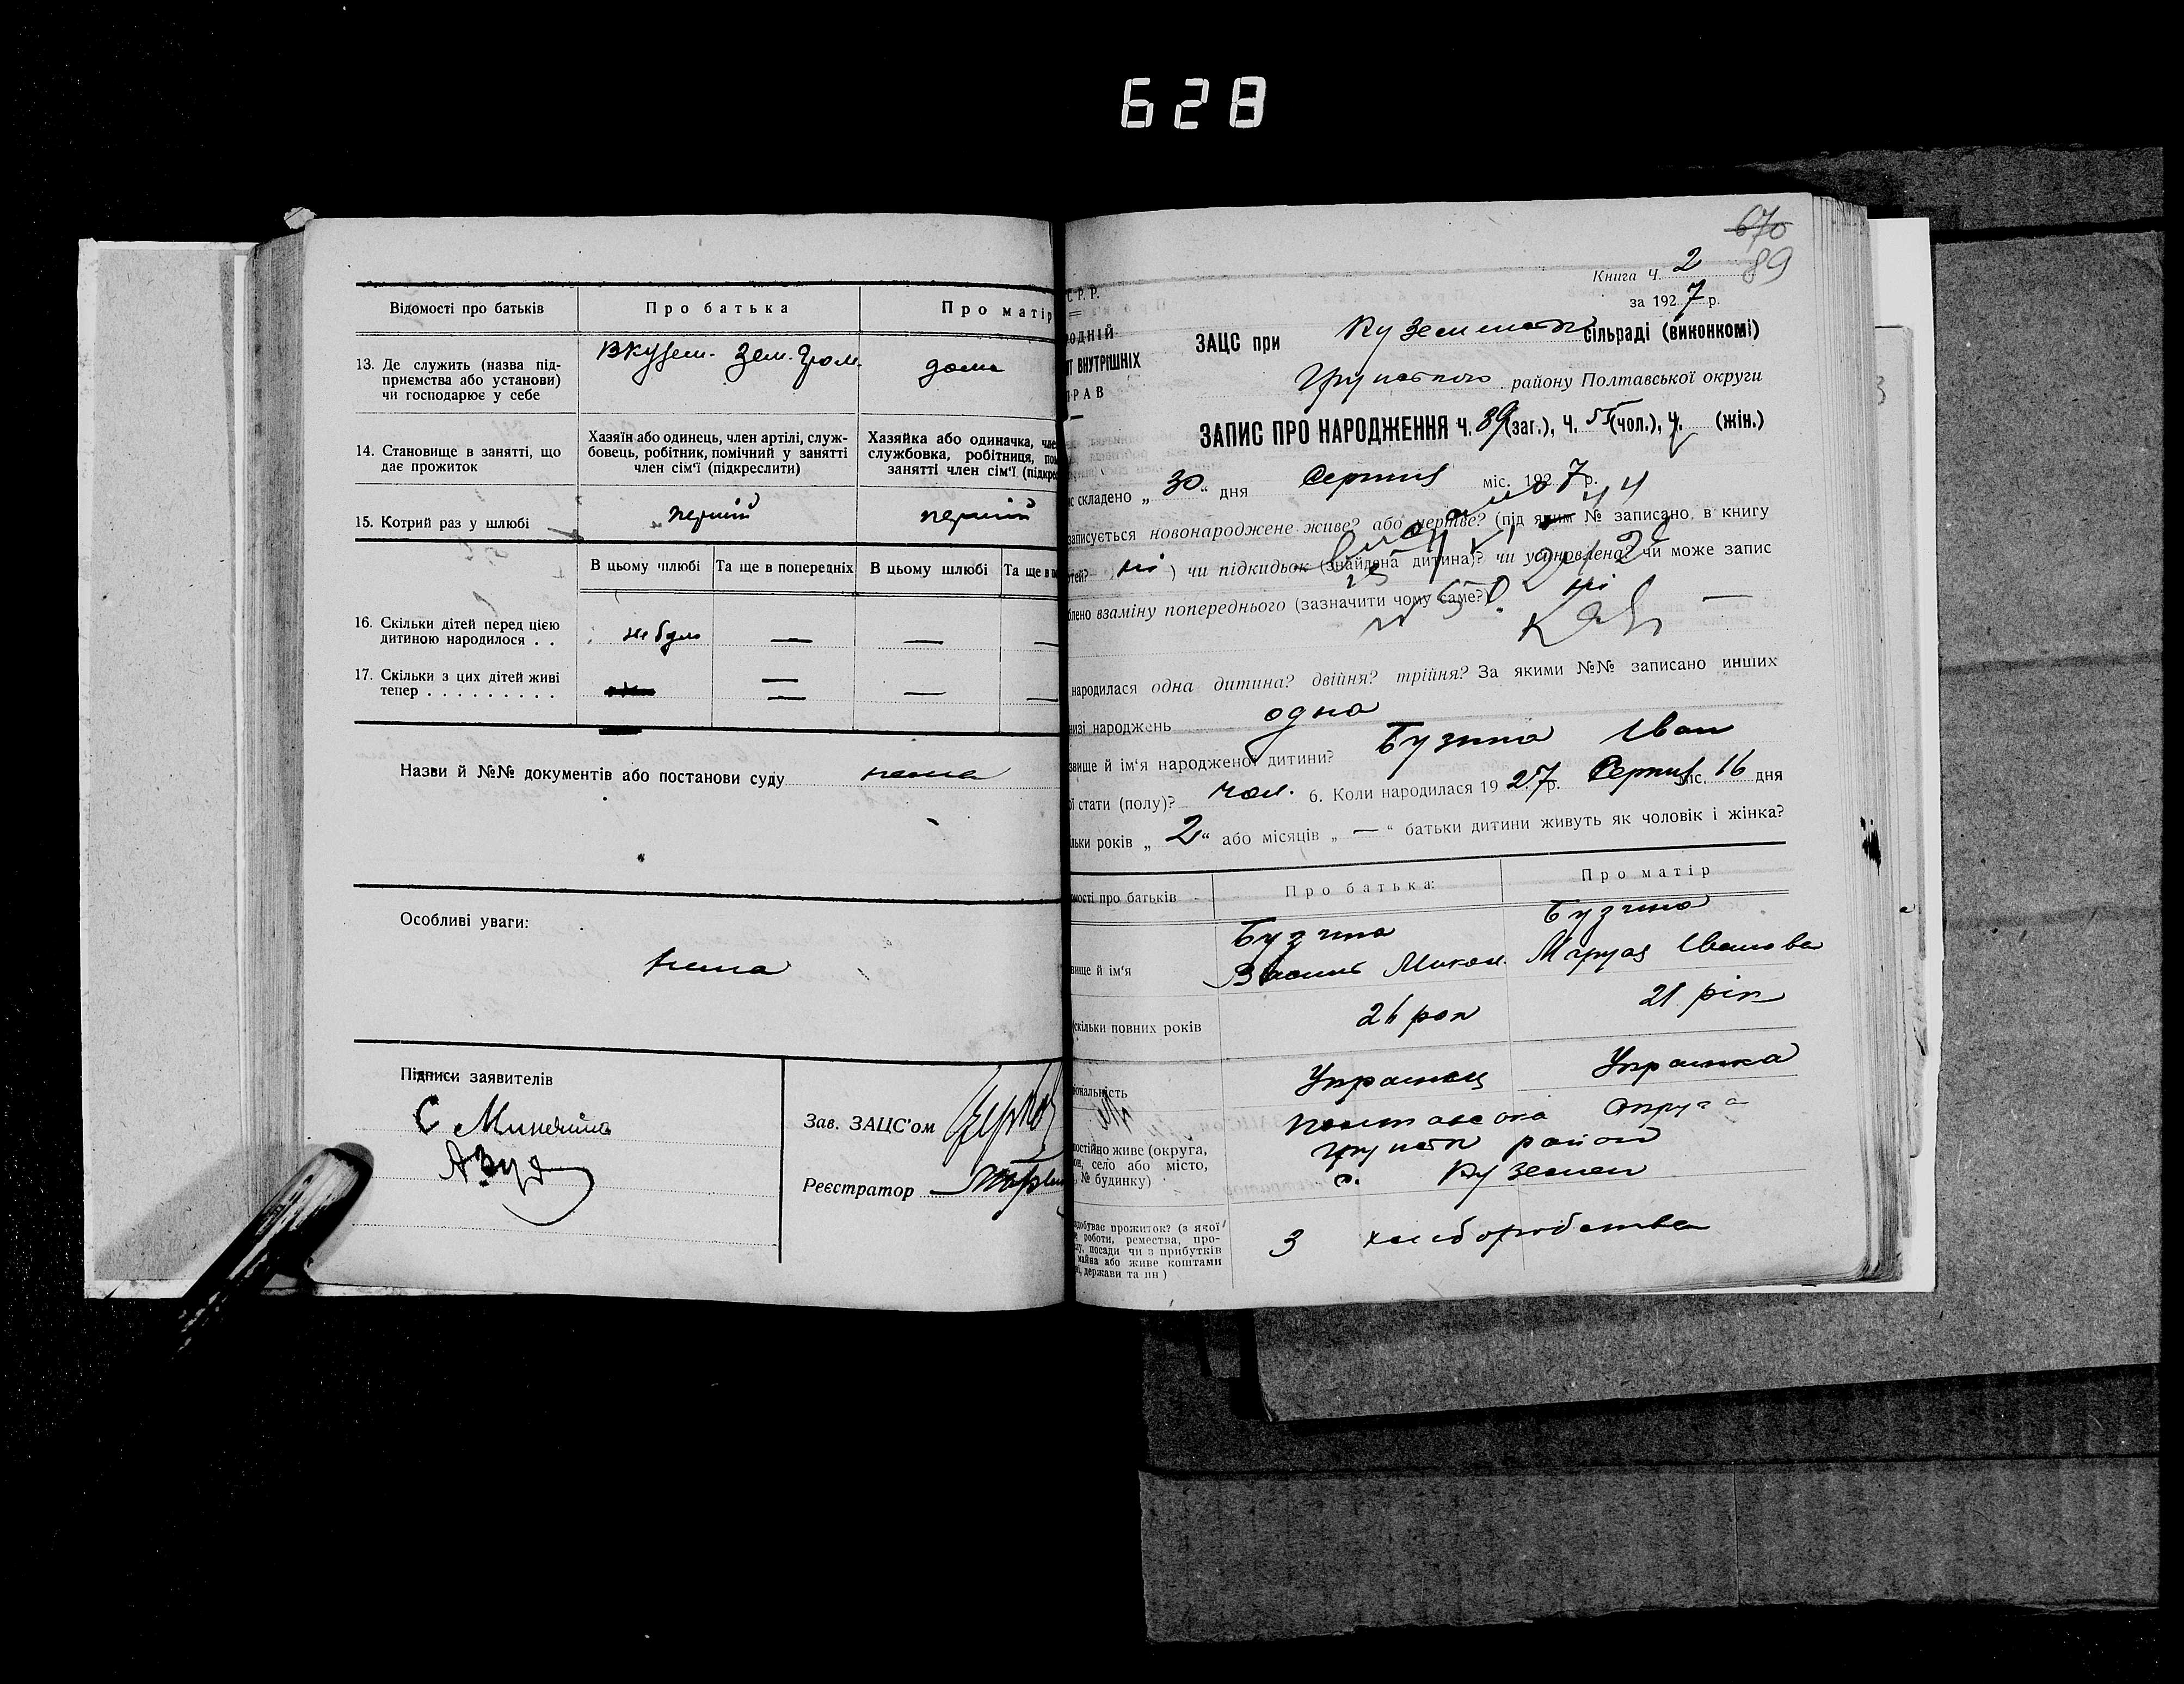 628
Відомості про батьків
Про батька
Про матір
13. Де служить (назва під-
приємства або установи)
чи господарює у себе
Вкузем. Зем. Гром.
дома
14. Становище в занятті, що
дає прожиток
Хазяїн або одинець, член артілі, служ-
бовець, робітник, помічний у занятті
член сім'ї (підкреслити)
Хазяйка або одиначка, чле
службовка, робітниця, пом
занятті член сім'ї (підкрес
15. Котрий раз у шлюбі
перший
перший
В цьому шлюбі
Та ще в попередніх
В цьому шлюбі
Та ще в по
16. Скільки дітей перед цією
дитиною народилося . .
не було
—
—
—
17. Скільки з цих дітей живі
тепер . . . . . . . . . .
—
—
—
Назви й №№ документів або постанови суду
нема
Особливі уваги:
нема
Підписи заявителів
Зав. ЗАЦС'ом
Реєстратор
670
89
Книга Ч. 2
за 1927 р.
С.Р.Р.
РОДНІЙ
АТ ВНУТРІШНІХ
ПРАВ
ЗАЦС при Куземинск сільраді (виконкомі)
Грунського району Полтавської округи
ЗАПИС ПРО НАРОДЖЕННЯ Ч. 89 (заг.), Ч. 55 (чол.), Ч. (жін.)
с складено „ 30 “ дня Серпня міс. 1927 р.
записується новонароджене живе? або мертве? (під яким № записано в книгу
ртей? ні ) чи підкидьок (знайдена дитина)? чи усиновлена? чи може запис
блено взаміну попереднього (зазначити чому саме?) ні
—
народилася одна дитина? двійня? трійня? За якими №№ записано инших
низі народжень одна
звище й ім'я народженої дитини? Бузина Іван
ої стати (полу)? чол. 6. Коли народилася 1927 р. Серпня міс. 16 дня
льки років „ 2 “ або місяців „ — “ батьки дитини живуть як чоловік і жінка?
мості про батьків
Про батька:
Про матір
вище й ім'я
Бузина
Василь Микол.
Бузина
Маруся Іванова
скільки повних років
26 рок
21 рік
іональність
Українец
Українка
постійно живе (округа,
он, село або місто,
№ будинку)
Полтавска округа
Грунск район
с. Куземен
здобуває прожиток? (з якої
роботи, ремества, про-
лу, посади чи з прибутків
майна або живе коштами
ні, держави та ин )
З хлиборобства